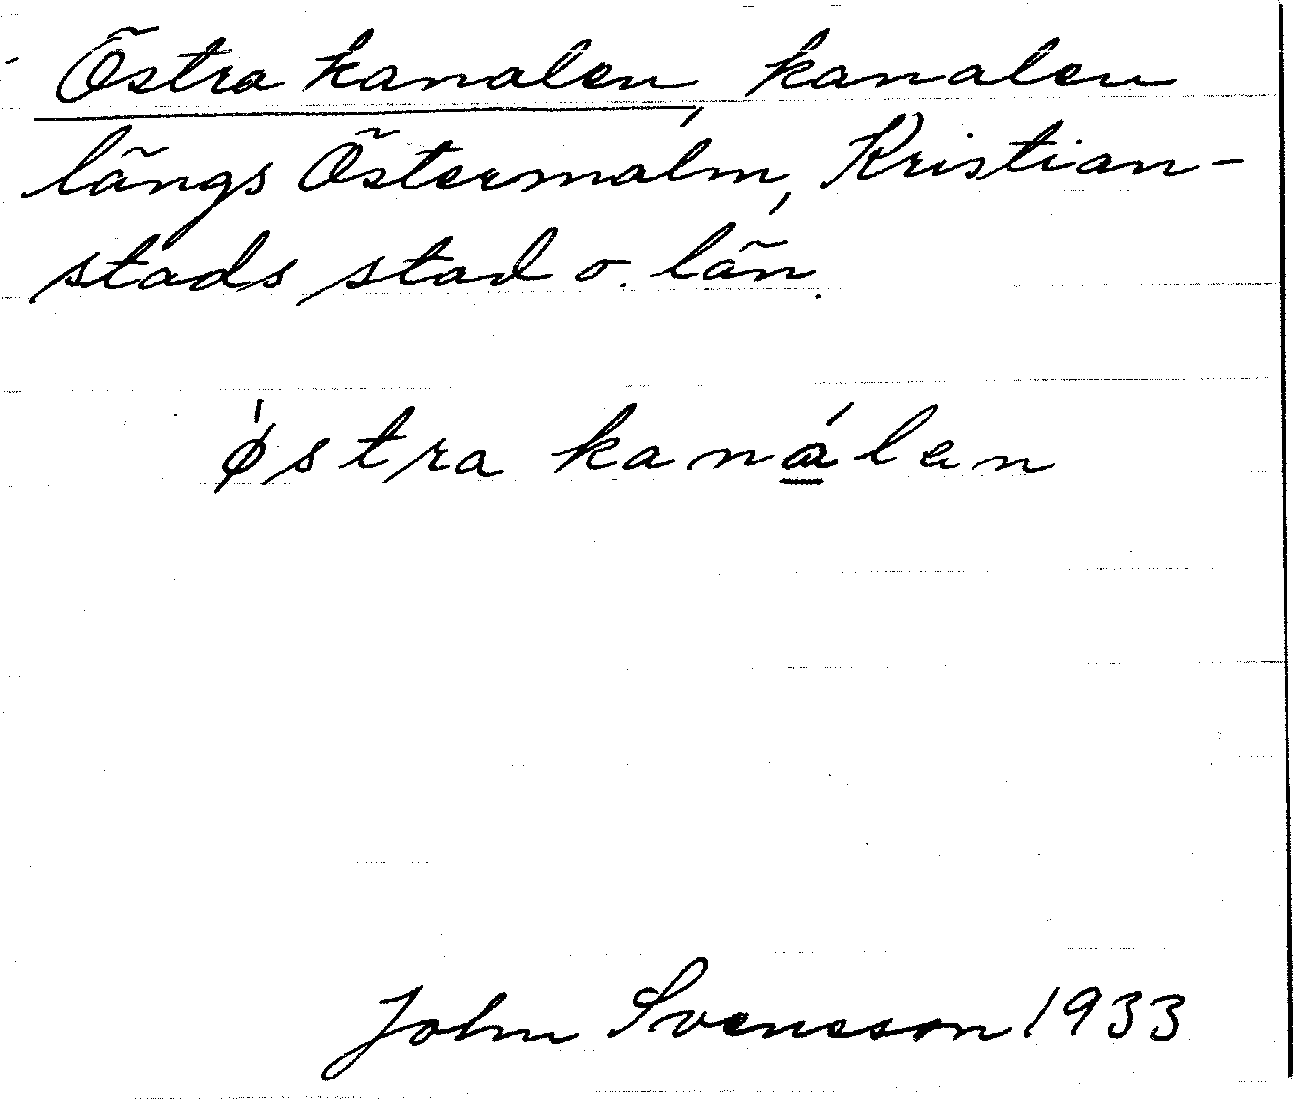 Östra kanalen, kanalen
längs Östermalm, Kristian-
stads stad o. län.
ǿstra kanálen
John Svensson 1933